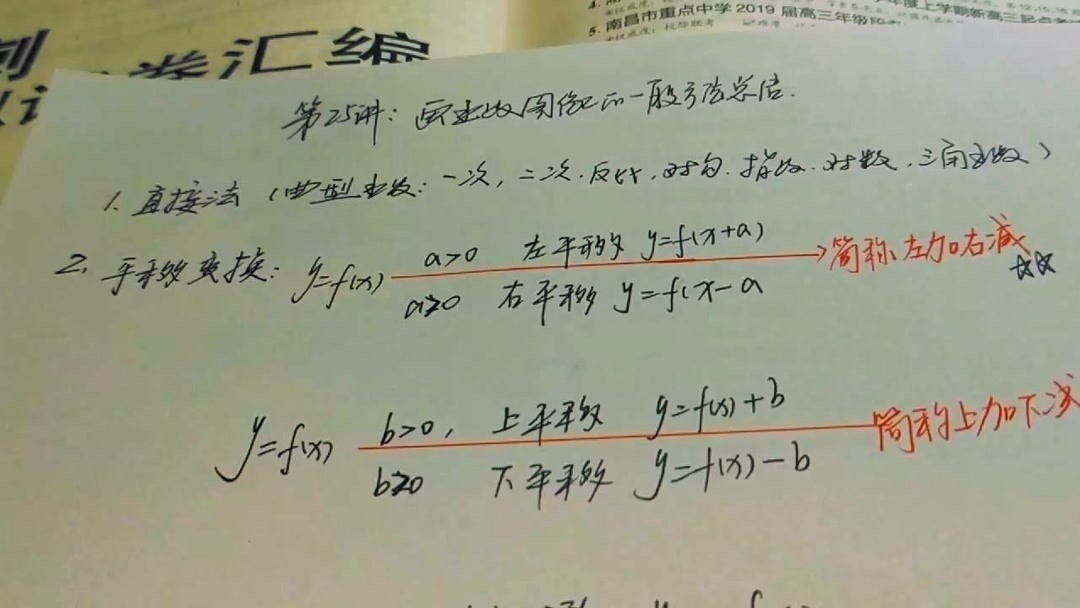 卷汇编
5. 南昌市重点中学2019届高三年级
第25讲：画函数图像的一般方法总结.
1. 直接法（典型函数：一次，二次.反比，对勾.指数.对数，三角函数）
2. 平移变换：y=f(x) a>0 左平移 y=f(x+a) 简称左加右减 ☆☆
a>0 右平移 y=f(x-a
y=f(x) b>0, 上平移 y=f(x)+b 简称上加下减
b>0 下平移 y=f(x)-b